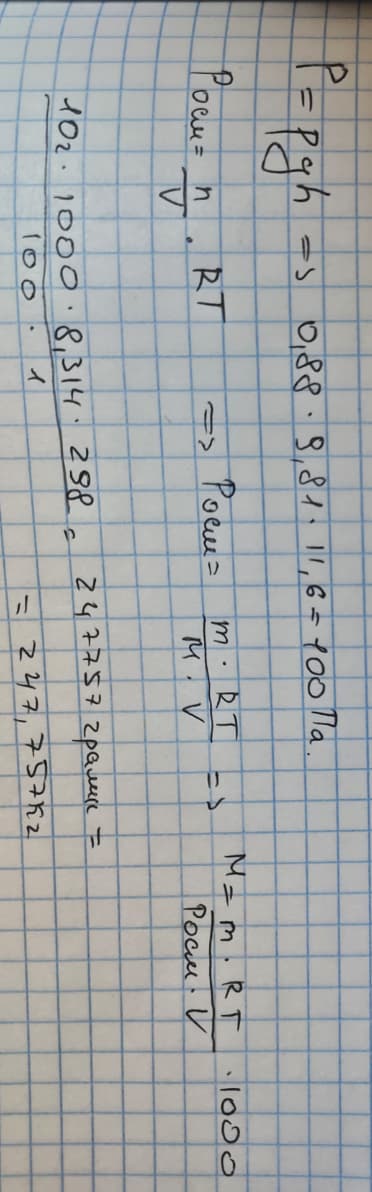 P = ρgh => 0,88 · 9,81 · 11,6 = 100 Па.
Росм = n/V · RT => Росм = m · RT / M · V => M = m · RT / Росм · V · 1000
10г · 1000 · 8,314 · 298 / 100 · 1 = 247757 грамм =
= 247,757кг